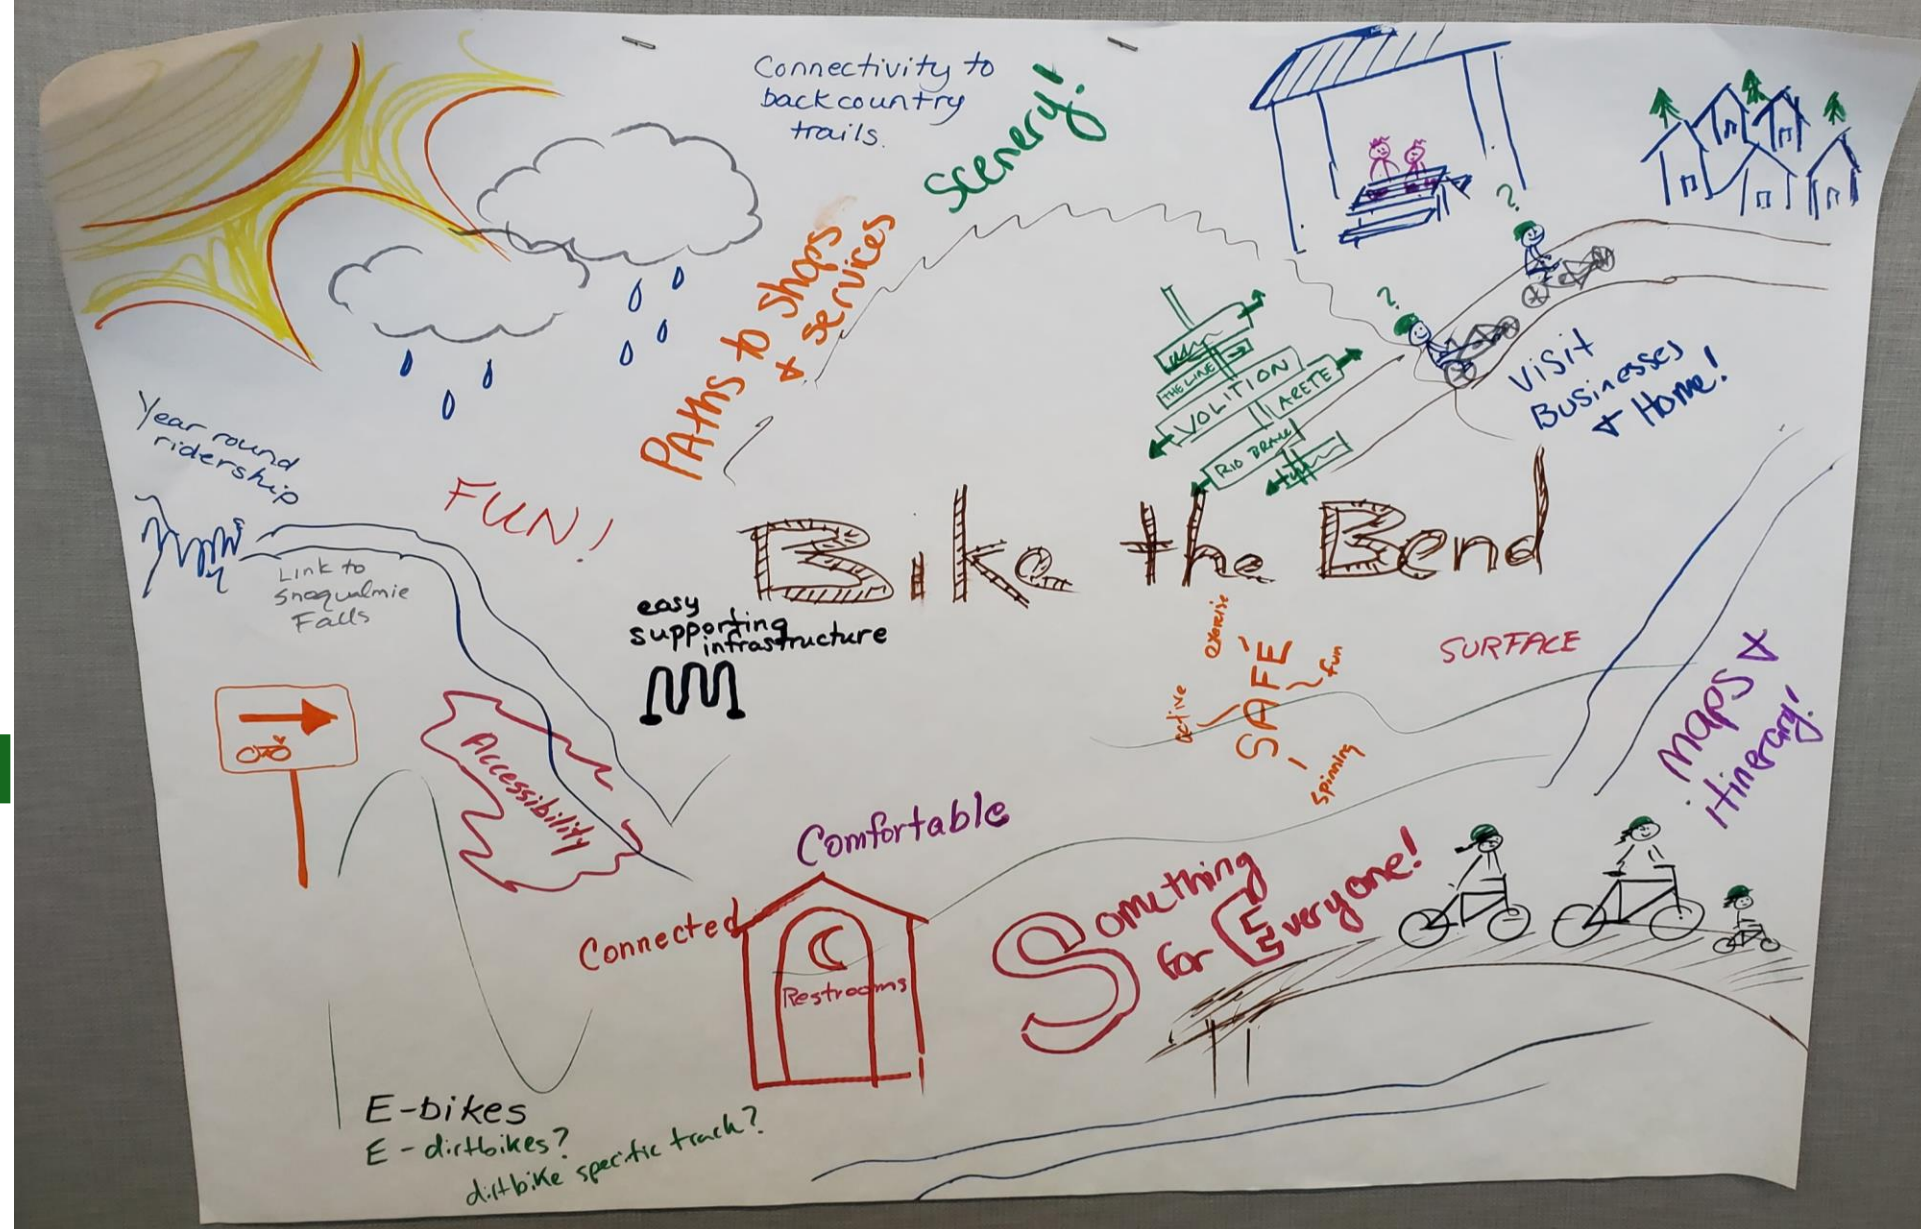 Connectivity to
backcountry
trails.
Scenery!
Paths to shops
+ services
?
?
THE LINE
VOLITION
ARETE
RIO BRAVO
Visit
Businesses
+ Home!
Year round
ridership
FUN!
Bike the Bend
Link to
Snoqualmie
Falls
easy
supporting
infrastructure
exercise
SAFE
fun
active
spinning
SURFACE
Maps +
itinerary!
Accessibility
Comfortable
Connected
Restrooms
Something
for Everyone!
E-bikes
E-dirtbikes?
dirtbike specific track?